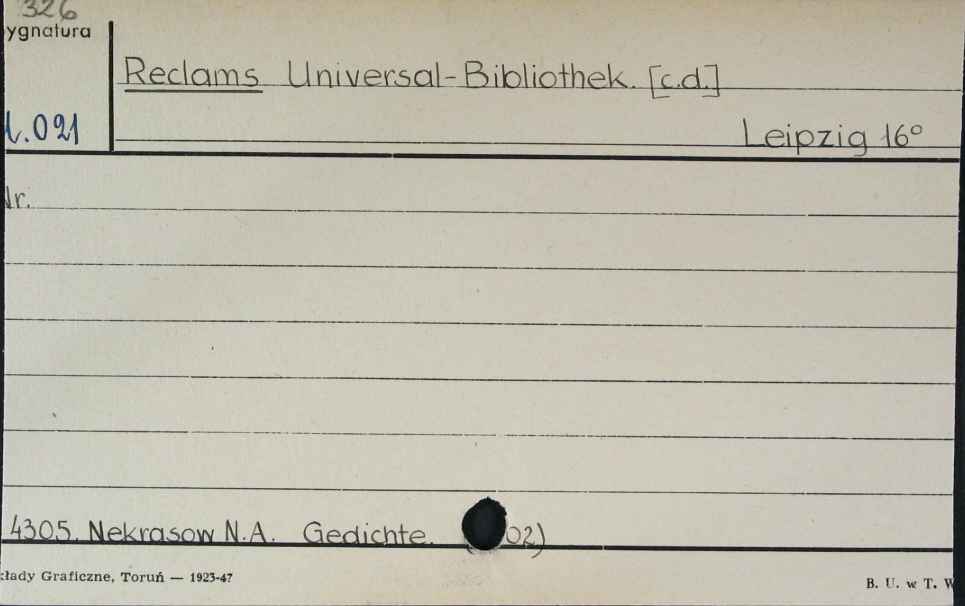 326
ygnatura
Reclams Universal-Bibliothek. [c.d.]
021
Leipzig 16°
Nr.
4305. Nekrasow N.A. Gedichte. ( 02)
kłady Graficzne, Toruń — 1923-47
B. U. w T. W